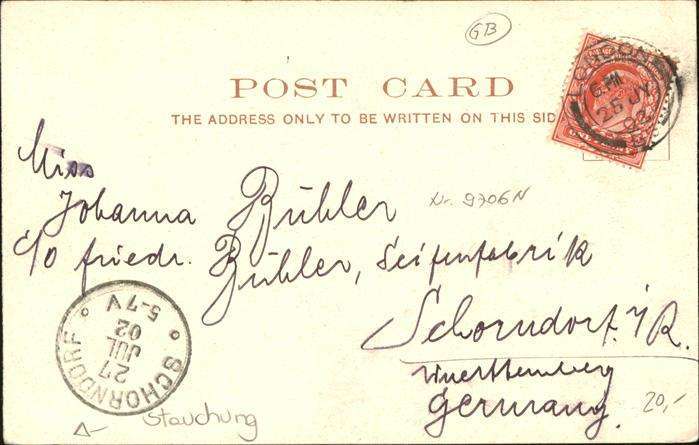 GB
POST CARD
THE ADDRESS ONLY TO BE WRITTEN ON THIS SID
LONDON
6. PM
25 JY
02
Miss
Johanna Bühler
Nr. 9706N
c/o friedr. Bühler, Seifenfabrik
Schorndorf i/R.
Württemberg
Germany.
20,-
SCHORNDORF
27
JUL
02
5-7V
Stauchung